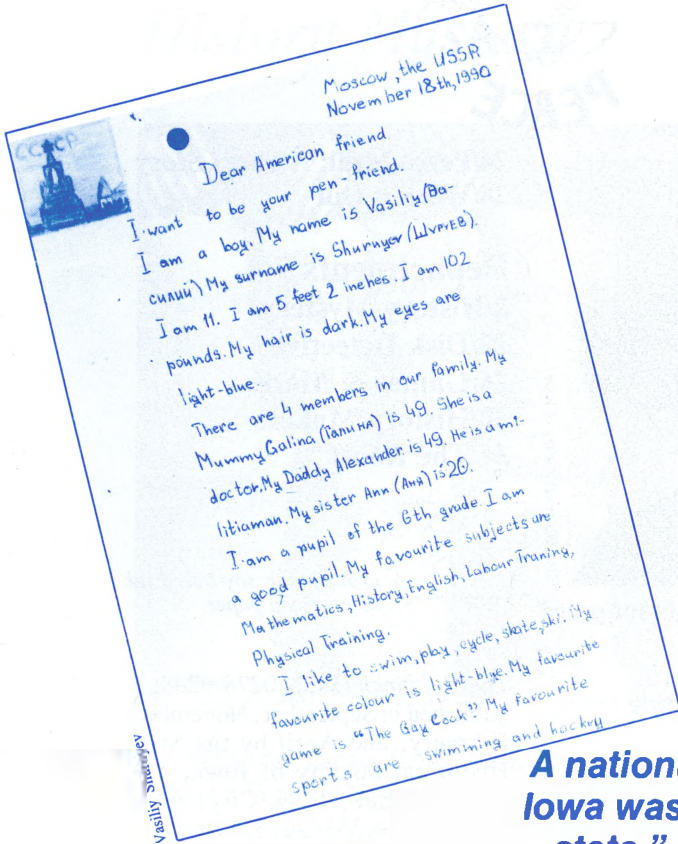 CCCP
Moscow, the USSR
November 18th, 1990
Dear American friend
I want to be your pen-friend.
I am a boy. My name is Vasiliy (Ва-
силий) My surname is Shuruyev (
I am 11. I am 5 feet 2 inehes. I am 102
pounds. My hair is dark. My eyes are
light-blue
There are 4 members in our family. My
Mummy Galina (Галина) is 49. She is a
doctor. My Daddy Alexander is 49. He is a mi-
litiaman. My sister Ann (Аня) is 20.
I am a pupil of the 6th grade. I am
a good pupil. My favourite subjects are
Mathematics, History, English, Labour Traning,
Physical Training.
I like to swim, play, cycle, skate, ski. My
favourite colour is light-blye. My favourite
game is "The Gay Cook". My favourite
sports are swimming and hockey
Vasiliy
A nation
Iowa was
state."